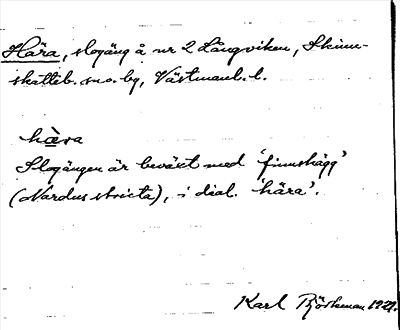 Håra, slogäng å nr 2 Långviken, Skinn-
skatteb. sn o. bg, Västmanl. l.
hæ̀ra
Slogängen är beväxt med 'finnskägg'
(Nardus stricta), i dial. 'håra'.
Karl Björkman 192